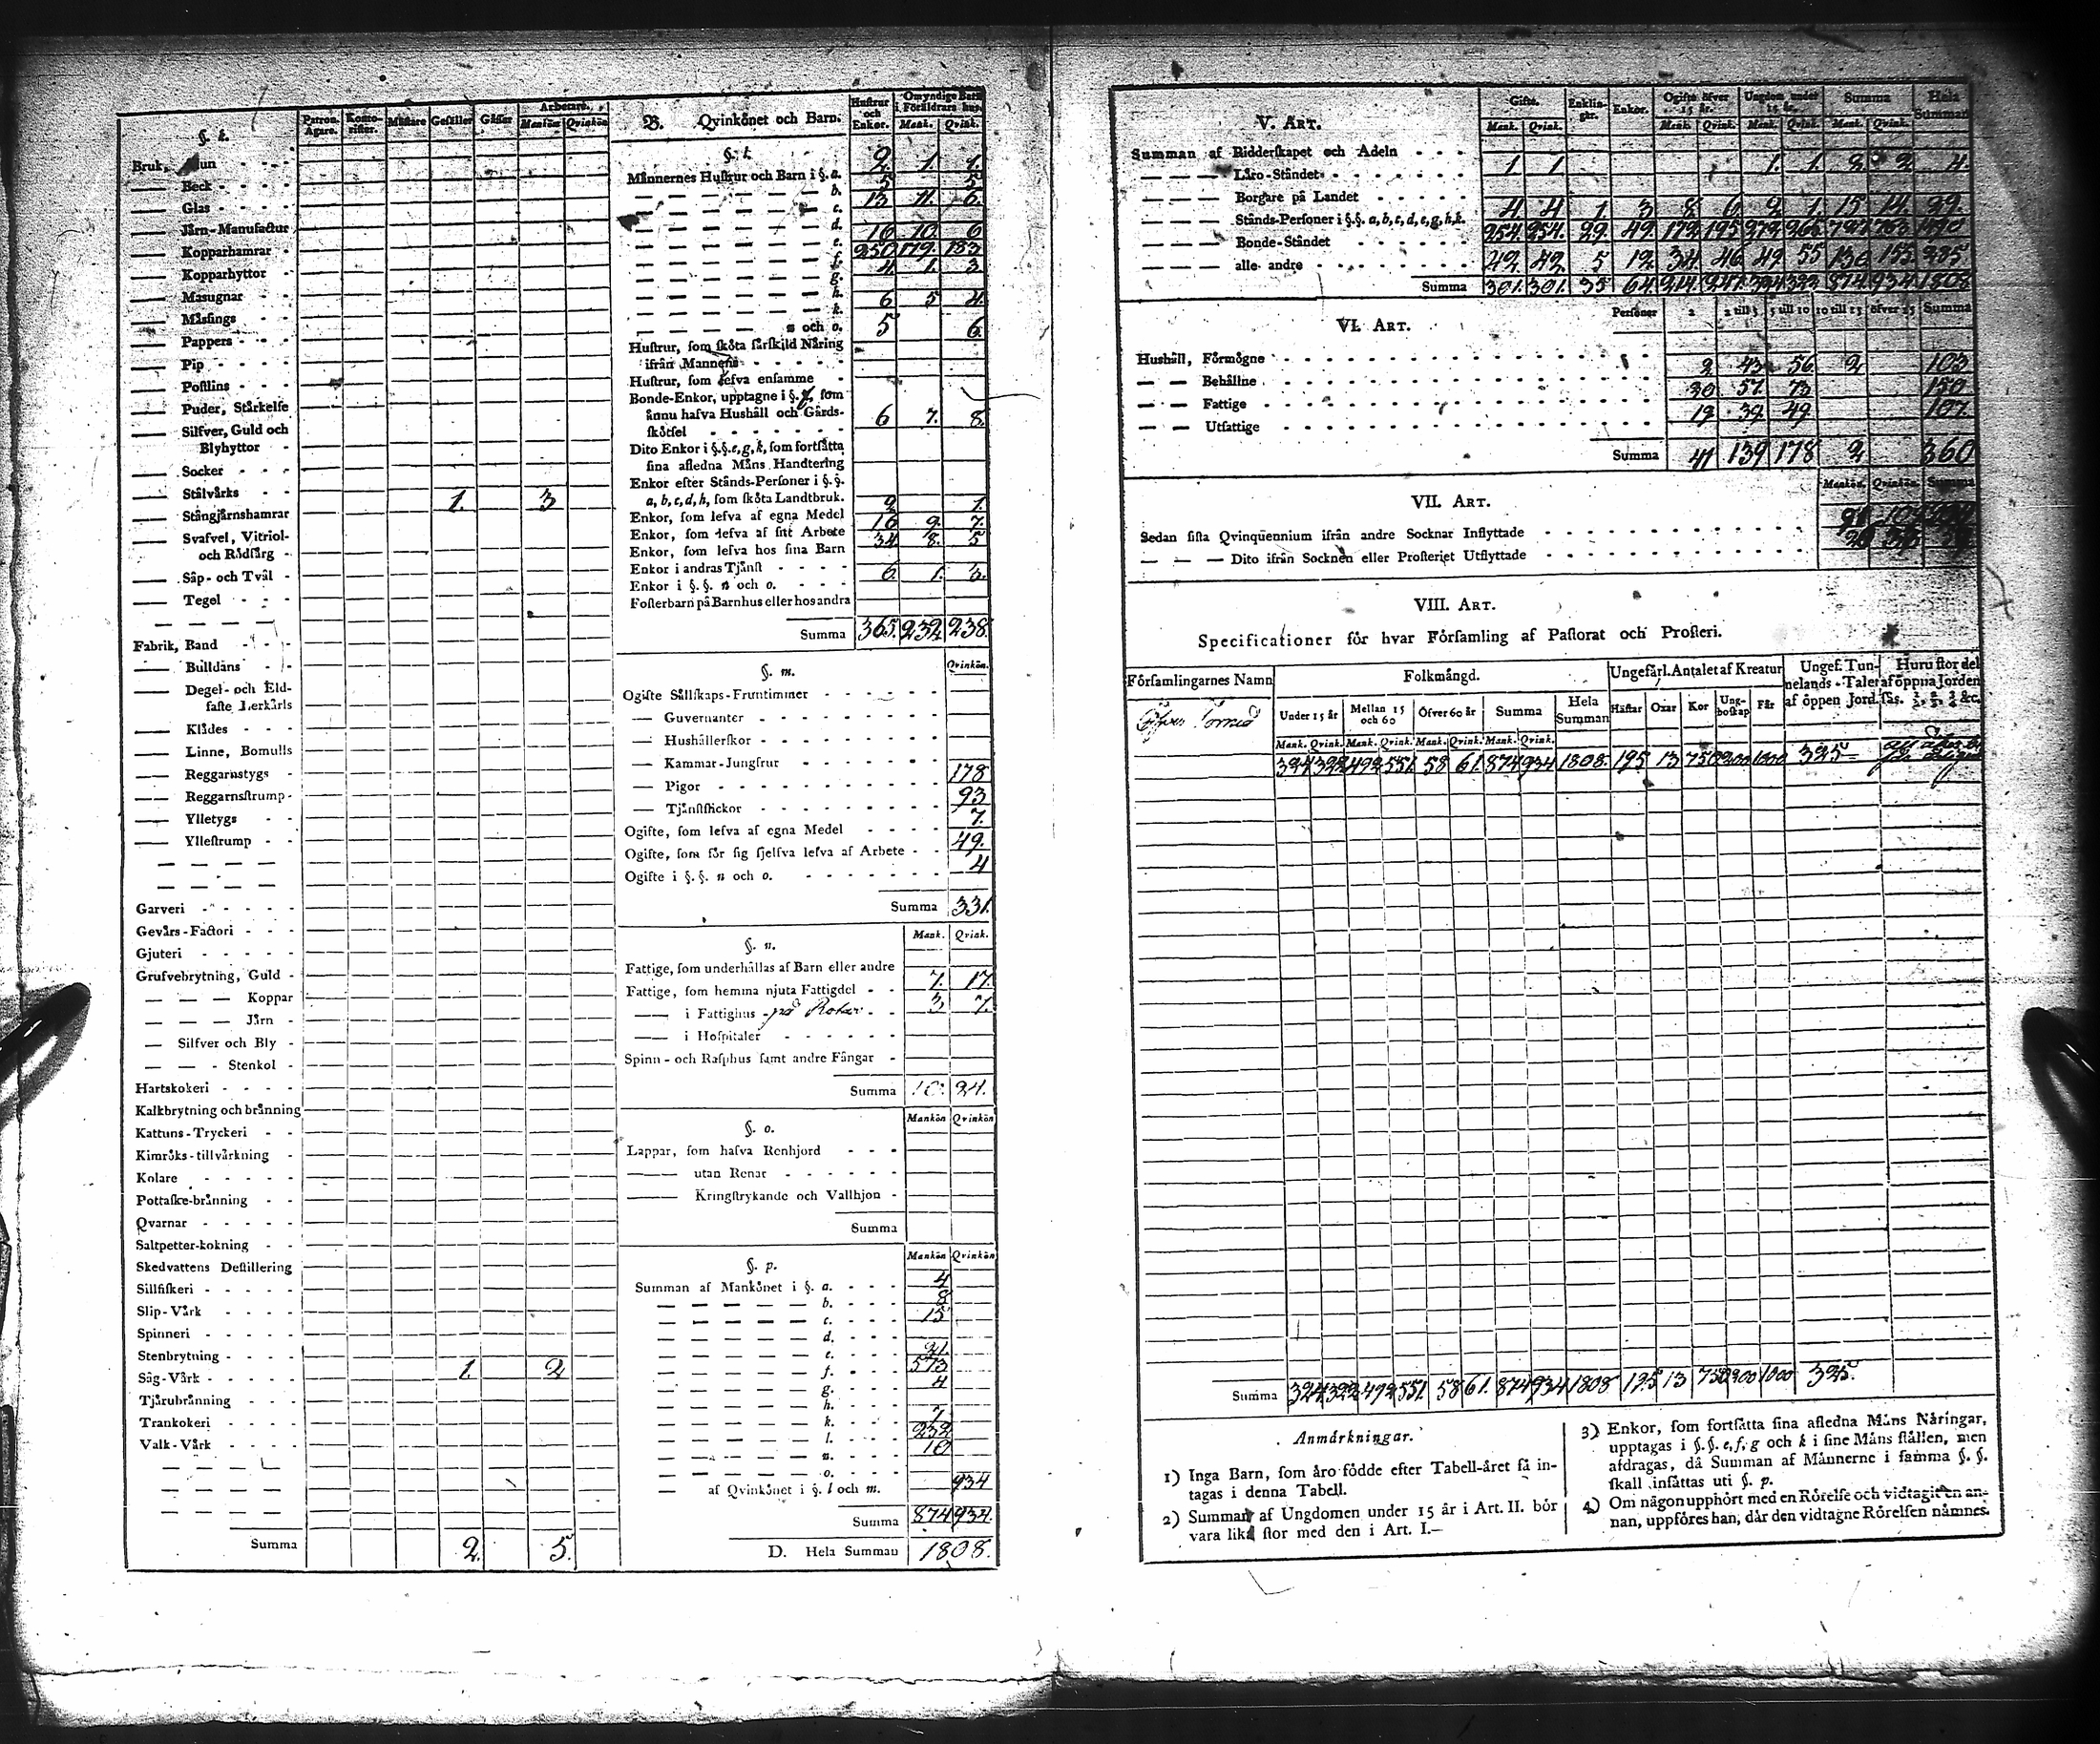 §. k. Patron. Ägare. Konto-rister. Mästare Gesäller Gåsser Arbetare. Mankön Qvinkön
Bruk,
— Beck - - - -
— Glas - - - -
— Jårn-Manufactur
— Kopparhamrar -
— Kopparhyttor -
— Masugnar - -
— Måsings - -
— Pappers - - -
— Pip - - - -
— Poſtlins - - -
— Puder, Stårkelſe
— Silfver, Guld och
Blyhyttor -
— Socker - - -
— Stålvårks - -
— Stångjårnshamrar 1. 3
— Svafvel, Vitriol-
och Rödfårg -
— Såp- och Tvål -
— Tegel - - -
— — — — —
Fabrik, Band - - -
— Bulldans - -
— Degel- och Eld-
faſte Lerkårls
— Klådes - - -
— Linne, Bomulls
— Reggarnstygs -
— Reggarnsſtrump-
— Ylletygs - -
— Ylleſtrump - -
— — — —
— — — —
Garveri - - - - -
Gevårs-Factori - - -
Gjuteri - - - - -
Grufvebrytning, Guld -
— — — Koppar
— — — Jårn -
— Silfver och Bly -
— — - Stenkol -
Hartskokeri - - - -
Kalkbrytning och brånning
Kattuns-Tryckeri - -
Kimröks-tillvårkning -
Kolare - - - - -
Pottaſke-brånning - -
Qvarnar - - - - -
Saltpetter-kokning - -
Skedvattens Deſtillering
Sillfiſkeri - - - - -
Slip-Vårk - - - -
Spinneri - - - - -
Stenbrytning - - - -
Såg-Vårk - - - - 1. 2
Tjårubrånning - - -
Trankokeri - - - -
Valk-Vårk - - - -
— — — —
— — — —
— — — —
Summa 2. 5.
B. Qvinkönet och Barn. Huſtrur och Enkor. Omyndige Barn i Föräldrars hus. Mank. Qvink.
§. l.
Månnernes Huſtrur och Barn i §. a. 2 1. 1.
— — — — — b. 5 5
— — — — — c. 13 11. 6.
— — — — — d.
— — — — — e. 16 10. 6
— — — — — f. 250 179. 183
— — — — — g. 4. 1. 3
— — — — — h.
— — — — — k. 6 5 4.
— — — — n och o. 5 6.
Huſtrur, ſom ſköta ſårſkild Nåring
ifrån Mannens - - - -
Huſtrur, ſom lefva enſamme -
Bonde-Enkor, upptagne i §. f, ſom
ånnu hafva Hushåll och Gårds-
ſkötſel - - - - - 6 7. 8.
Dito Enkor i §.§. e, g, k, ſom fortſåtta
ſina aflednа Måns Handtering
Enkor efter Stånds-Perſoner i §.§.
a, b, c, d, h, ſom ſköta Landtbruk.
Enkor, ſom lefva af egna Medel 2 1.
Enkor, ſom lefva af ſitt Arbete 16 9. 7.
Enkor, ſom lefva hos ſina Barn 34 8. 5
Enkor i andras Tjånſt - - - -
Enkor i §. §. n och o. - - - 6. 1.
Foſterbarn på Barnhus eller hos andra
Summa 365. 232. 238.
§. m. Qvinkön.
Ogifte Sållſkaps-Fruntimmer - - - - -
— Guvernanter - - - - - - - -
— Hushållerſkor - - - - - - - -
— Kammar-Jungfrur - - - - - -
— Pigor - - - - - - - - - 178
— Tjånſtſlickor - - - - - - - 93
Ogifte, ſom lefva af egna Medel - - - - 7.
Ogifte, ſom för ſig ſjelfva lefva af Arbete - - 49.
Ogifte i §. §. n och o. - - - - - - - 4
Summa 331.
§. n. Mank. Qvink.
Fattige, ſom underhållas af Barn eller andre
Fattige, ſom hemma njuta Fattigdel - - 7. 17.
— i Fattighus - på Rotar - - 3. 7.
— i Hoſpitaler - - - - - -
Spinn- och Raſphus ſamt andre Fångar -
Summa 10. 24.
§. o. Mankön Qvinkön
Lappar, ſom hafva Renhjord - - -
— utan Renar - - - - - -
— Kringſtrykande och Vallhjon -
Summa
§. p. Mankön Qvinkön
Summan af Mankönet i §. a. - - - 4
— — — — — b. - - - 8
— — — — — c. - - - 15
— — — — — d. - - -
— — — — — e. - - - 21.
— — — — — f. - - - 573
— — — — — g. - - - 4
— — — — — h. - - -
— — — — — k. - - - 7.
— — — — — l. - - - 232
— — — — — n. - - - 10
— — — — — o. - - -
— af Qvinkönet i §. l och m. 934
Summa 874 934.
D. Hela Summan 1808.
V. Art. Gifte. Mank. Qvink. Enklin-gar. Enkor. Ogifte öfver 15 år. Mank. Qvink. Ungdom under 15 år. Mank. Qvink. Summa Mank. Qvink. Hela Summan
Summan af Ridderſkapet och Adeln - - -
— — — Låro-Ståndet - - - - - - 1 1 1. 1. 2. 2 4
— — — Borgare på Landet - - - - -
— — — Stånds-Perſoner i §.§. a, b, c, d, e, g, h, k. 4 4 1 3 8 6 2 1. 15 14. 29.
— — — Bonde-Ståndet - - - - - - 254. 254. 29. 49. 172. 195 272. 265. 727. 763 1490
— — — alle andre - - - - - - - 42. 42. 5 12. 34. 46. 49. 55 130. 155. 285.
Summa 301. 301. 35 64. 214. 247. 324 322. 874. 934. 1808
VI. Art. Perſoner 2 2 till 5 5 till 10 10 till 15 öfver 15 Summa
Hushåll, Förmögne - - - - - - 2 43 56. 2 103
— — Behållne - - - - - - 20 57. 73 150
— — Fattige - - - - - - 19 39 49 107.
— — Utfattige - - - - - -
Summa 41 139 178 2 360
VII. Art. Mankön. Qvinkön. Summa
Sedan ſiſta Qvinquennium ifrån andre Socknar Inflyttade - - - -
— — — Dito ifrån Socknen eller Proſteriet Utflyttade - - - -
VIII. Art.
Specificationer för hvar Förſamling af Paſtorat och Proſteri.
Förſamlingarnes Namn Folkmångd. Ungefärl. Antalet af Kreatur Ungef. Tun-nelands-Talet af öppen Jord. Huru ſtor del af öppna Jorden
Under 15 år Mellan 15 och 60 Öfver 60 år Summa Hela Summan Håſtar Oxar Kor Ung-boſkap Får
Mank. Qvink. Mank. Qvink. Mank. Qvink. Mank. Qvink.
324 322 492 551. 58 61. 874 934 1808. 195 13 750 200 1000 325
Summa 324. 322. 492 551. 58 61. 874 934 1808 195 13 750 200 1000 325.
Anmårkningar.
1) Inga Barn, ſom åro födde efter Tabell-året få in-
tagas i denna Tabell.
2) Summan af Ungdomen under 15 år i Art. II. bör
vara lika ſtor med den i Art. I.—
3) Enkor, ſom fortſåtta ſina aflednа Måns Nåringar,
upptagas i §. §. e, f, g och k i ſine Måns ſtållen, men
afdragas, då Summan af Månnerne i ſamma §. §.
ſkall infåttas uti §. p.
4) Om någon upphört med en Rörelſe och vidtagit en an-
nan, uppföres han, dår den vidtagne Rörelſen nåmnes.